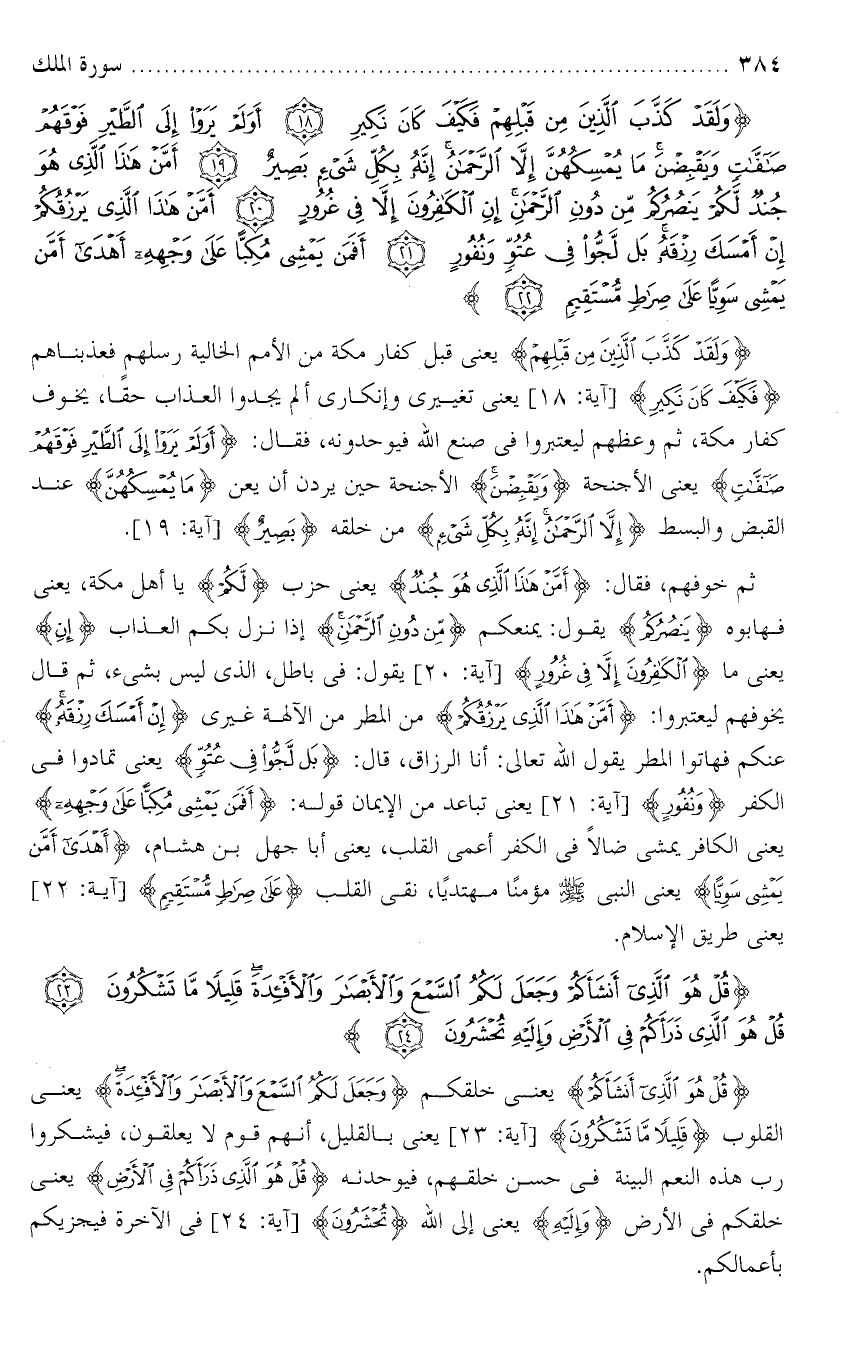 ٣٨٤ ........................................................................ سورة الملك
﴿وَلَقَدْ كَذَّبَ ٱلَّذِينَ مِن قَبْلِهِمْ فَكَيْفَ كَانَ نَكِيرِ ۝١٨ أَوَلَمْ يَرَوْا۟ إِلَى ٱلطَّيْرِ فَوْقَهُمْ
صَـٰٓفَّـٰتٍ وَيَقْبِضْنَ ۚ مَا يُمْسِكُهُنَّ إِلَّا ٱلرَّحْمَـٰنُ ۚ إِنَّهُۥ بِكُلِّ شَىْءٍۭ بَصِيرٌ ۝١٩ أَمَّنْ هَـٰذَا ٱلَّذِى هُوَ
جُندٌ لَّكُمْ يَنصُرُكُم مِّن دُونِ ٱلرَّحْمَـٰنِ ۚ إِنِ ٱلْكَـٰفِرُونَ إِلَّا فِى غُرُورٍ ۝٢٠ أَمَّنْ هَـٰذَا ٱلَّذِى يَرْزُقُكُمْ
إِنْ أَمْسَكَ رِزْقَهُۥ ۚ بَل لَّجُّوا۟ فِى عُتُوٍّ وَنُفُورٍ ۝٢١ أَفَمَن يَمْشِى مُكِبًّا عَلَىٰ وَجْهِهِۦٓ أَهْدَىٰٓ أَمَّن
يَمْشِى سَوِيًّا عَلَىٰ صِرَٰطٍ مُّسْتَقِيمٍ ۝٢٢ ﴾
﴿وَلَقَدْ كَذَّبَ ٱلَّذِينَ مِن قَبْلِهِمْ﴾ يعنى قبل كفار مكة من الأمم الخالية رسلهم فعذبناهم
﴿فَكَيْفَ كَانَ نَكِيرِ﴾ [آية: ١٨] يعنى تغييرى وإنكارى ألم يجدوا العذاب حقًا، يخوف
كفار مكة، ثم وعظهم ليعتبروا فى صنع الله فيوحدونه، فقال: ﴿أَوَلَمْ يَرَوْا۟ إِلَى ٱلطَّيْرِ فَوْقَهُمْ
صَـٰٓفَّـٰتٍ﴾ يعنى الأجنحة ﴿وَيَقْبِضْنَ ۚ﴾ الأجنحة حين يردن أن يعن ﴿مَا يُمْسِكُهُنَّ﴾ عند
القبض والبسط ﴿إِلَّا ٱلرَّحْمَـٰنُ ۚ إِنَّهُۥ بِكُلِّ شَىْءٍۭ﴾ من خلقه ﴿بَصِيرٌ﴾ [آية: ١٩].
ثم خوفهم، فقال: ﴿أَمَّنْ هَـٰذَا ٱلَّذِى هُوَ جُندٌ﴾ يعنى حزب ﴿لَّكُمْ﴾ يا أهل مكة، يعنى
فهابوه ﴿يَنصُرُكُم﴾ يقول: يمنعكم ﴿مِّن دُونِ ٱلرَّحْمَـٰنِ ۚ﴾ إذا نزل بكم العذاب ﴿إِنِ﴾
يعنى ما ﴿ٱلْكَـٰفِرُونَ إِلَّا فِى غُرُورٍ﴾ [آية: ٢٠] يقول: فى باطل، الذى ليس بشىء، ثم قال
يخوفهم ليعتبروا: ﴿أَمَّنْ هَـٰذَا ٱلَّذِى يَرْزُقُكُمْ﴾ من المطر من الآلهة غيرى ﴿إِنْ أَمْسَكَ رِزْقَهُۥ ۚ﴾
عنكم فهاتوا المطر يقول الله تعالى: أنا الرزاق، قال: ﴿بَل لَّجُّوا۟ فِى عُتُوٍّ﴾ يعنى تمادوا فى
الكفر ﴿وَنُفُورٍ﴾ [آية: ٢١] يعنى تباعد من الإيمان قوله: ﴿أَفَمَن يَمْشِى مُكِبًّا عَلَىٰ وَجْهِهِۦٓ﴾
يعنى الكافر يمشى ضالاً فى الكفر أعمى القلب، يعنى أبا جهل بن هشام، ﴿أَهْدَىٰٓ أَمَّن
يَمْشِى سَوِيًّا﴾ يعنى النبى ﷺ مؤمنًا مهتديًا، نقى القلب ﴿عَلَىٰ صِرَٰطٍ مُّسْتَقِيمٍ﴾ [آية: ٢٢]
يعنى طريق الإسلام.
﴿قُلْ هُوَ ٱلَّذِىٓ أَنشَأَكُمْ وَجَعَلَ لَكُمُ ٱلسَّمْعَ وَٱلْأَبْصَـٰرَ وَٱلْأَفْـِٔدَةَ ۖ قَلِيلًا مَّا تَشْكُرُونَ ۝٢٣
قُلْ هُوَ ٱلَّذِى ذَرَأَكُمْ فِى ٱلْأَرْضِ وَإِلَيْهِ تُحْشَرُونَ ۝٢٤ ﴾
﴿قُلْ هُوَ ٱلَّذِىٓ أَنشَأَكُمْ﴾ يعنى خلقكم ﴿وَجَعَلَ لَكُمُ ٱلسَّمْعَ وَٱلْأَبْصَـٰرَ وَٱلْأَفْـِٔدَةَ ۖ﴾ يعنى
القلوب ﴿قَلِيلًا مَّا تَشْكُرُونَ﴾ [آية: ٢٣] يعنى بالقليل، أنهم قوم لا يعلقون، فيشكروا
رب هذه النعم البينة فى حسن خلقهم، فيوحدنه ﴿قُلْ هُوَ ٱلَّذِى ذَرَأَكُمْ فِى ٱلْأَرْضِ﴾ يعنى
خلقكم فى الأرض ﴿وَإِلَيْهِ﴾ يعنى إلى الله ﴿تُحْشَرُونَ﴾ [آية: ٢٤] فى الآخرة فيجزيكم
بأعمالكم.